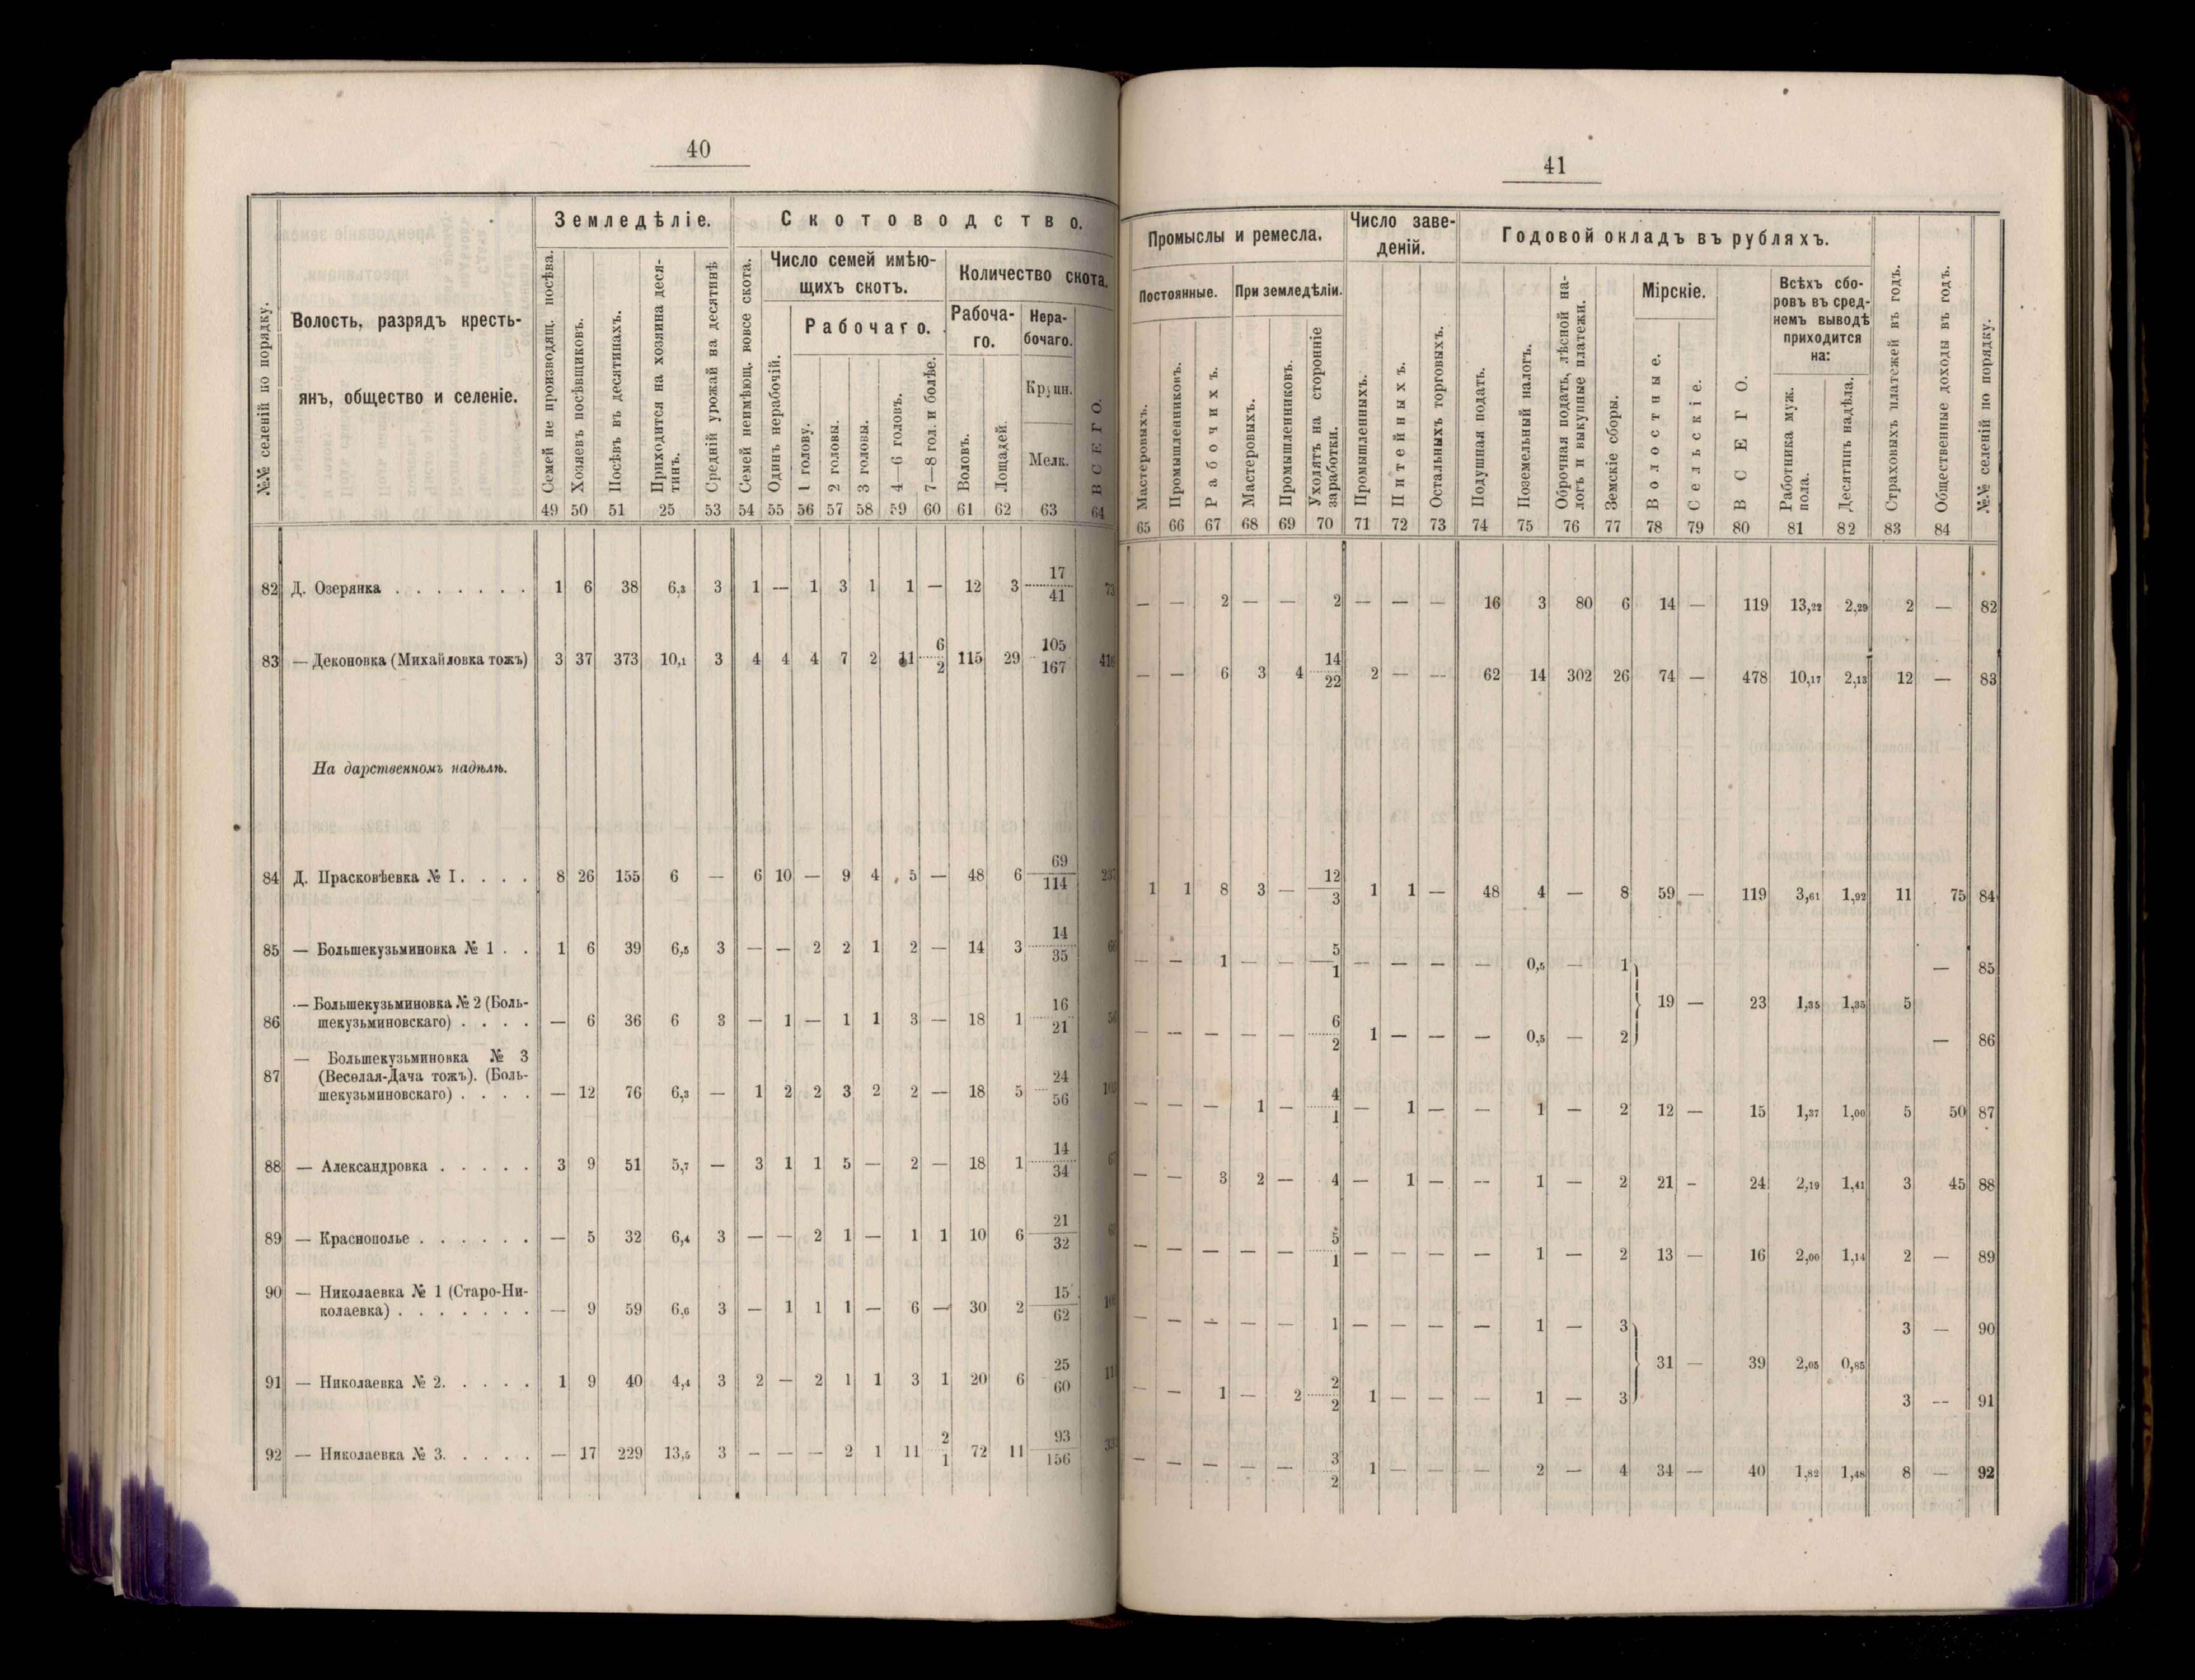 40
Земледѣліе. Скотоводство.
№№ селеній по порядку.
Волость, разрядъ кресть-
янъ, общество и селеніе.
Семей не производящ. посѣва.
Хозяевъ посѣвщиковъ.
Посѣвъ въ десятинахъ.
Приходится на хозяина деся-
тинъ.
Средній урожай на десятинѣ
Семей неимѣющ. вовсе скота.
Число семей имѣю-
щихъ скотъ.
Одинъ нерабочій.
Рабочаго.
1 голову.
2 головы.
3 головы.
4—6 головъ.
7—8 гол. и болѣе.
Количество скота.
Рабоча-
го.
Воловъ.
Лошадей.
Нера-
бочаго.
Крупн.
Мелк.
ВСЕГО.
49 50 51 25 53 54 55 56 57 58 59 60 61 62 63 64
82 Д. Озерянка . . . . . . . 1 6 38 6,3 3 1 — 1 3 1 1 — 12 3 17/41 73
83 — Деконовка (Михайловка тожъ) 3 37 373 10,1 3 4 4 4 7 2 11 6/2 115 29 105/167 416
На дарственномъ надѣлѣ.
84 Д. Прасковѣевка № I. . . . 8 26 155 6 — 6 10 — 9 4 5 — 48 6 69/114 237
85 — Большекузьминовка № 1 . . 1 6 39 6,5 3 — — 2 2 1 2 — 14 3 14/35 66
— Большекузьминовка № 2 (Боль-
86 шекузьминовскаго) . . . . — 6 36 6 3 — 1 — 1 1 3 — 18 1 16/21 56
— Большекузьминовка № 3
87 (Веселая-Дача тожъ). (Боль-
шекузьминовскаго) . . . . — 12 76 6,3 — 1 2 2 3 2 2 — 18 5 24/56 103
88 — Александровка . . . . . 3 9 51 5,7 — 3 1 1 5 — 2 — 18 1 14/34 67
89 — Краснополье . . . . . . — 5 32 6,4 3 — — 2 1 — 1 1 10 6 21/32 69
90 — Николаевка № 1 (Старо-Ни-
колаевка) . . . . . . . — 9 59 6,6 3 — 1 1 1 — 6 — 30 2 15/62 109
91 — Николаевка № 2. . . . . 1 9 40 4,4 3 2 — 2 1 1 3 1 20 6 25/60 111
92 — Николаевка № 3. . . . . — 17 229 13,5 3 — — — 2 1 11 2/1 72 11 93/156 332
41
Промыслы и ремесла.
Число заве-
деній.
Годовой окладъ въ рубляхъ.
Постоянные.
При земледѣліи.
Мастеровыхъ.
Промышленниковъ.
Рабочихъ.
Мастеровыхъ.
Промышленниковъ.
Уходятъ на сторонніе
заработки.
Промышленныхъ.
Питейныхъ.
Остальныхъ торговыхъ.
Подушная подать.
Поземельный налогъ.
Оброчная подать, лѣсной на-
логъ и выкупные платежи.
Земскіе сборы.
Мірскіе.
Волостные.
Сельскіе.
ВСЕГО.
Всѣхъ сбо-
ровъ въ сред-
немъ выводѣ
приходится
на:
Работника муж.
пола.
Десятинъ надѣла.
Страховыхъ платежей въ годъ.
Общественные доходы въ годъ.
№№ селеній по порядку.
65 66 67 68 69 70 71 72 73 74 75 76 77 78 79 80 81 82 83 84
— — 2 — — 2 — — — 16 3 80 6 14 — 119 13,22 2,29 2 — 82
— — 6 3 4 14/22 2 — — 62 14 302 26 74 — 478 10,17 2,13 12 — 83
1 1 8 3 — 12/3 1 1 — 48 4 — 8 59 — 119 3,61 1,92 11 75 84
— — 1 — — 5/1 — — — — 0,5 — 1 — 85
19 — 23 1,35 1,35 5
— — — — — 6/2 1 — — — 0,5 — 2 — 86
— — — 1 — 4/1 — 1 — — 1 — 2 12 — 15 1,37 1,00 5 50 87
— — 3 2 — 4 — 1 — — 1 — 2 21 — 24 2,19 1,41 3 45 88
— — — — — 5/1 — — — — 1 — 2 13 — 16 2,00 1,14 2 — 89
— — — — — 1 — — — — 1 — 3 3 — 90
31 — 39 2,05 0,85
— — 1 — 2 2/2 1 — — — 1 — 3 3 — 91
— — — — — 3/2 1 — — — 2 — 4 34 — 40 1,82 1,48 8 — 92